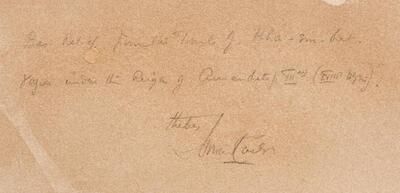 Bas Relief from the Tomb of Kha-em-hat.
under the Reign of Amenhotep III rd (XVIII Dyn).
Thebes
Howard Carter